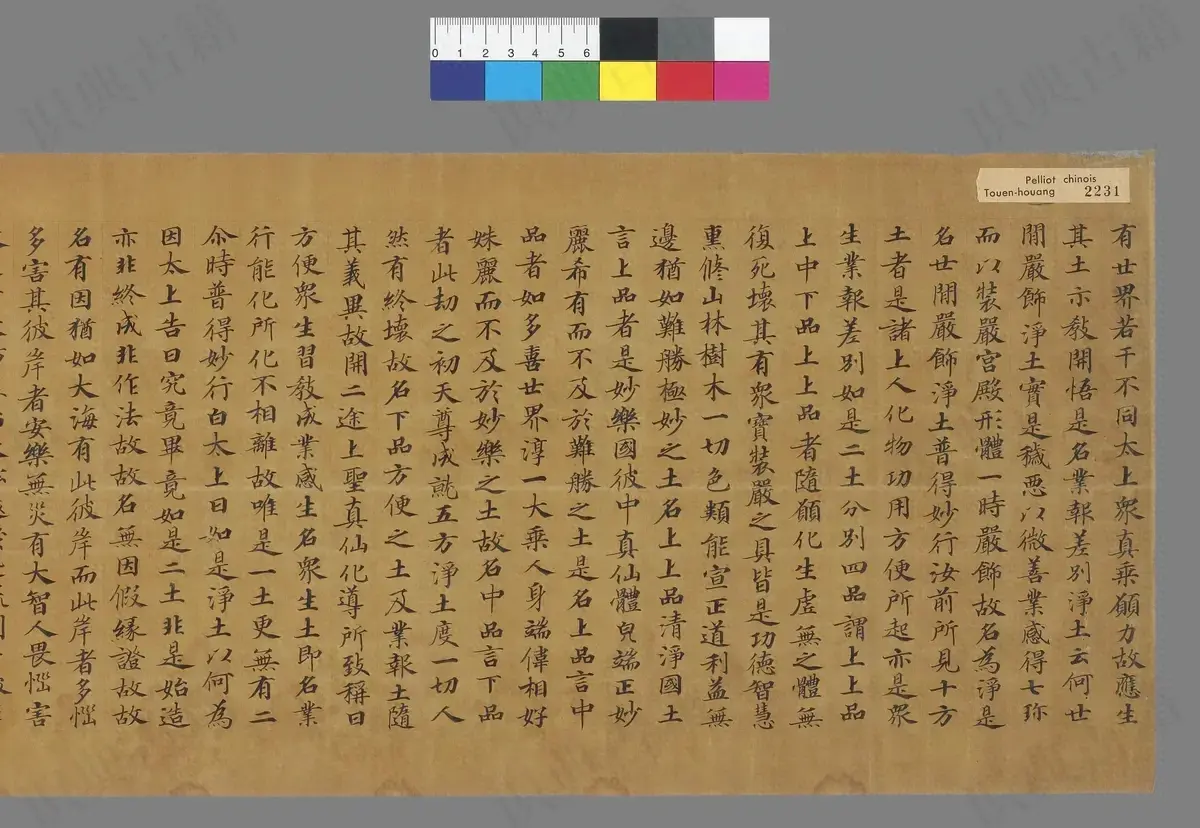 Pelliot chinois
Touen-houang 2231
0 1 2 3 4 5 6
有世界若干不同太上衆真乗願力故應生
其土示教開悟是名業報差别淨土云何世
間嚴飾淨土實是穢惡以微善業感得七珎
而以裝嚴宫殿形體一時嚴飾故名為淨是
名世間嚴飾淨土普得妙行汝前所見十方
土者是諸上人化物功用方便所起亦是衆
生業報差别如是二土分别四品謂上上品
上中下品上上品者隨願化生虚無之體無
復死壞其有衆寳裝嚴之具皆是功德智慧
熏修山林樹木一切色類能宣正道利益無
邊猶如難勝極妙之土名上上品清淨國土
言上品者是妙樂國彼中真仙體皃端正妙
麗希有而不及於難勝之土是名上品言中
品者如多喜世界淳一大乗人身端偉相好
姝麗而不及於妙樂之土故名中品言下品
者此劫之初天尊成就五方淨土度一切人
然有終壞故名下品方便之土及業報土隨
其義異故開二途上聖真仙化導所致稱曰
方便衆生習教成業感生名衆生土即名業
行能化所化不相離故唯是一土更無有二
尒時普得妙行白太上曰如是淨土以何為
因太上告曰究竟畢竟如是二土非是始造
亦非終成非作法故故名無因假縁證故故
名有因猶如大海有此彼岸而此岸者多惱
多害其彼岸者安樂無災有大智人畏惱害